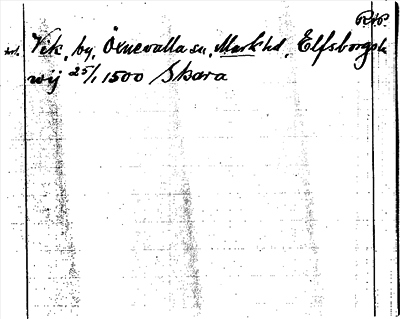 RAP.
Vik, by, Öxnevalla sn, Markhd, Elfsborgsl.
wij 25/1 1500 Skara